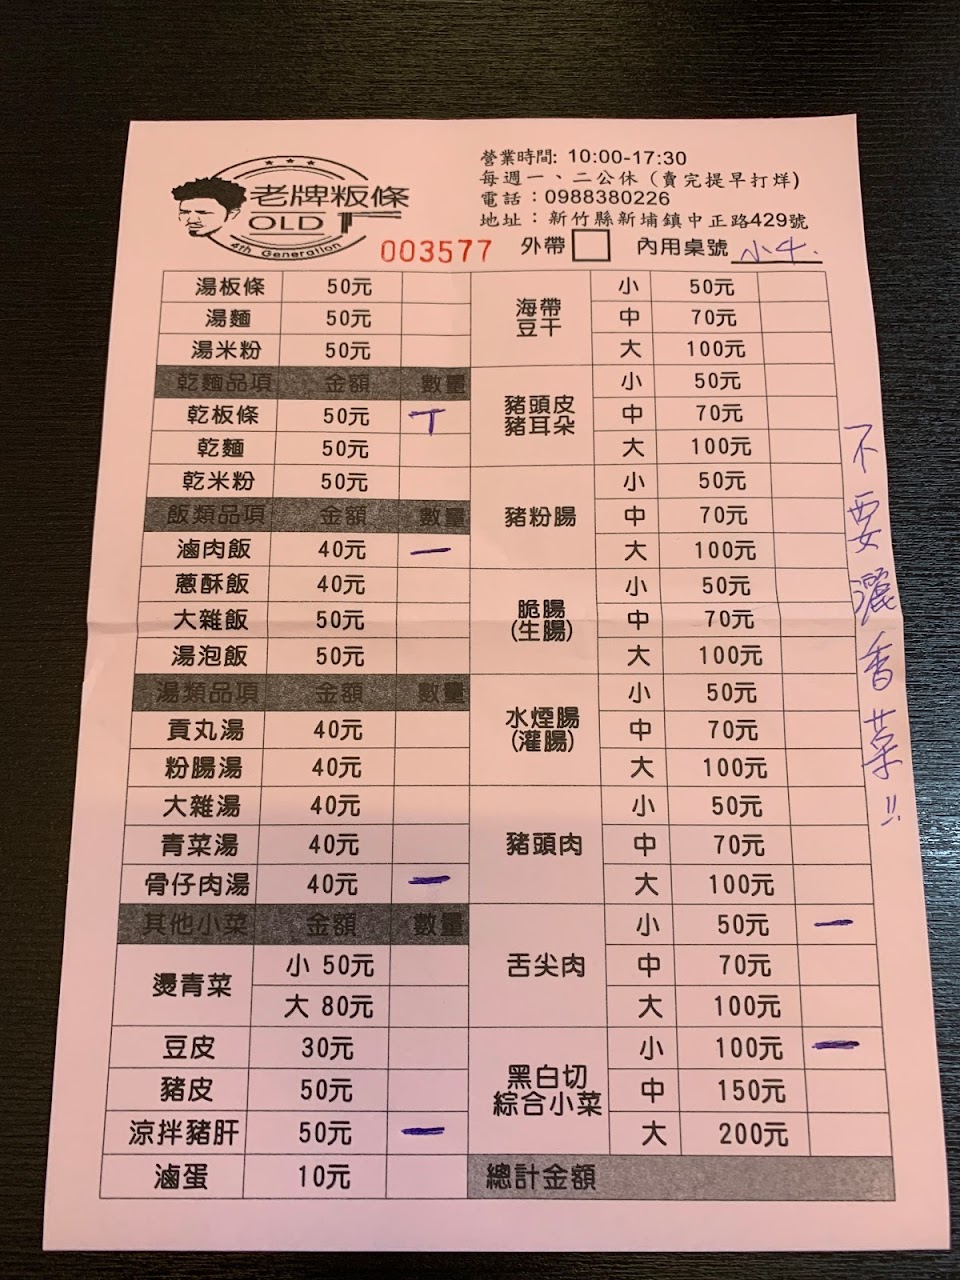 老牌粄條
OLD
4th Generation
營業時間: 10:00-17:30
每週一、二公休 (賣完提早打烊)
電話：0988380226
地址：新竹縣新埔鎮中正路429號
003577 外帶 內用桌號 小牛.
湯板條 50元
湯麵 50元
湯米粉 50元
乾麵品項 金額 數量
乾板條 50元 T
乾麵 50元
乾米粉 50元
飯類品項 金額 數量
滷肉飯 40元 一
蔥酥飯 40元
大雜飯 50元
湯泡飯 50元
湯類品項 金額 數量
貢丸湯 40元
粉腸湯 40元
大雜湯 40元
青菜湯 40元
骨仔肉湯 40元 一
其他小菜 金額 數量
燙青菜 小 50元
大 80元
豆皮 30元
豬皮 50元
涼拌豬肝 50元 一
滷蛋 10元
海帶
豆干
小 50元
中 70元
大 100元
豬頭皮
豬耳朵
小 50元
中 70元
大 100元
豬粉腸
小 50元
中 70元
大 100元
脆腸
(生腸)
小 50元
中 70元
大 100元
水煙腸
(灌腸)
小 50元
中 70元
大 100元
豬頭肉
小 50元
中 70元
大 100元
舌尖肉
小 50元 一
中 70元
大 100元
黑白切
綜合小菜
小 100元 一
中 150元
大 200元
總計金額
不要灑香菜!!